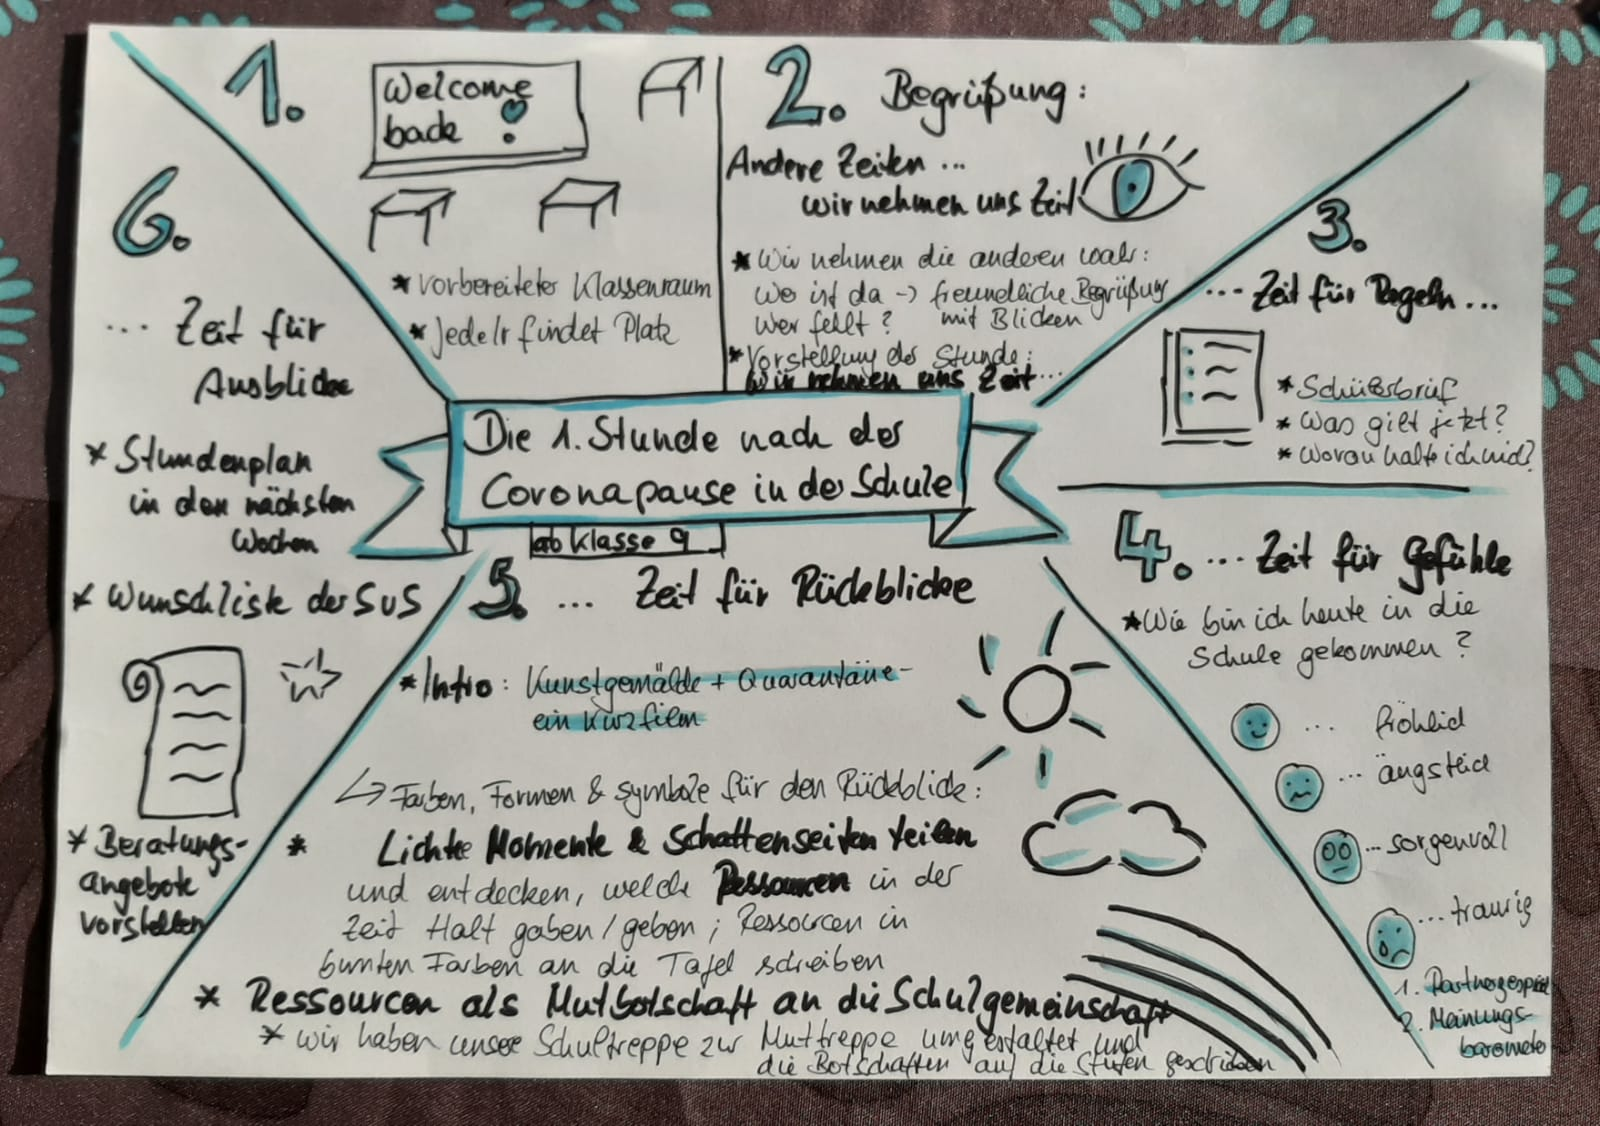 1.
Welcome
back !
* vorbereiteter Klassenraum
* jede/r findet Platz
2. Begrüßung:
Andere Zeiten ...
wir nehmen uns Zeit
* Wir nehmen die anderen wahr:
Wer ist da -> freundliche Begrüßung
Wer fehlt? mit Blicken
* Vorstellung der Stunde:
Wir nehmen uns Zeit...
3.
... Zeit für Regeln ...
* Schülerbrief
* Was gilt jetzt?
* Woran halte ich mich?
Die 1. Stunde nach der
Coronapause in der Schule
ab Klasse 9
4. ... Zeit für Gefühle
* Wie bin ich heute in die
Schule gekommen?
... fröhlich
... ängstlich
... sorgenvoll
... traurig
1. Partnergespräch
2. Meinungs-
barometer
5. ... Zeit für Rückblicke
* Intro: Kunstgemälde + Quarantäne-
ein Kurzfilm
↳ Farben, Formen & Symbole für den Rückblick:
* Lichte Momente & Schattenseiten teilen
und entdecken, welche Ressourcen in der
Zeit Halt gaben/geben; Ressourcen in
bunten Farben an die Tafel schreiben
* Ressourcen als Mutbotschaft an die Schulgemeinschaft
* wir haben unsere Schultreppe zur Muttreppe umgestaltet und
die Botschaften auf die Stufen geschrieben
6.
... Zeit für
Ausblicke
* Stundenplan
in den nächsten
Wochen
* Wunschliste der SuS
* Beratungs-
angebote
vorstellen